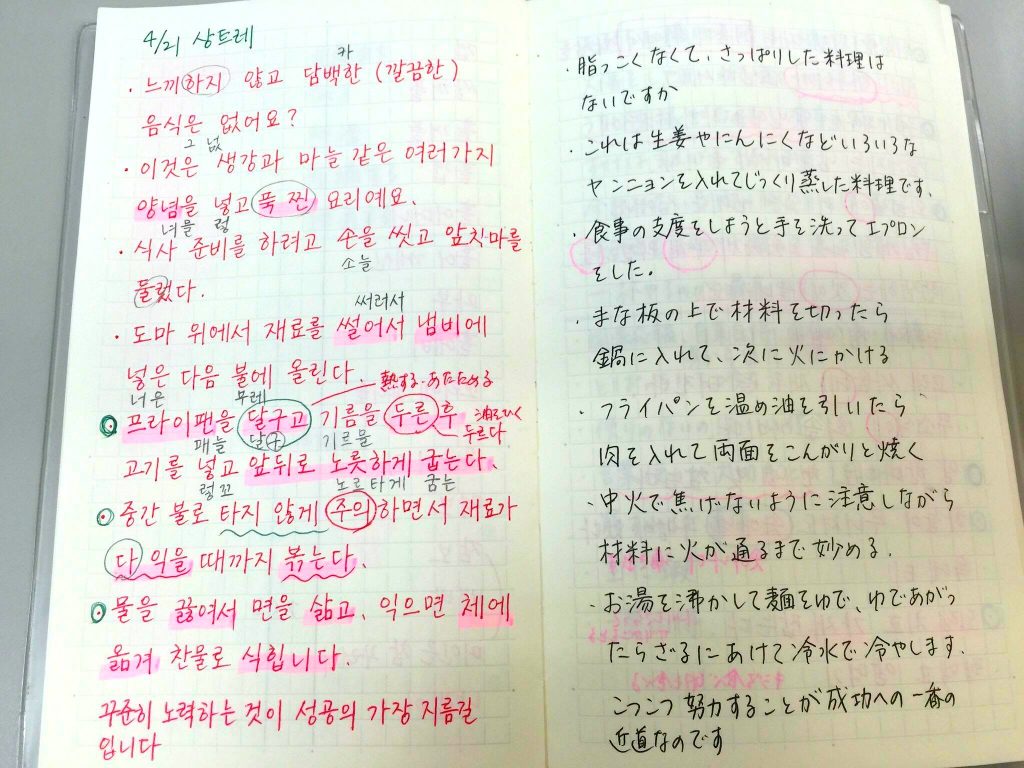 4/21 상트레
카
· 느끼하지 않고 담백한 (깔끔한)
음식은 없어요?
그 넜
· 이것은 생강과 마늘 같은 여러가지
양념을 넣고 푹 찐 요리예요.
녀믈 렁
· 식사 준비를 하려고 손을 씻고 앞칫마를
소늘
둘렀다.
써러서
· 도마 위에서 재료를 썰어서 냄비에
넣은 다음 불에 올린다.
너은 무레
熱する・あたためる
프라이팬을 달구고 기름을 두른 후
油をひく
두르다
패늘 날구 기르믈
고기를 넣고 앞뒤로 노릇하게 굽는다.
렁꼬 노르타게 굼는
중간 불로 타지 않게 주의하면서 재료가
다 익을 때까지 볶는다.
물을 끓여서 면을 삶고, 익으면 체에
옮겨 찬물로 식힙니다.
꾸준히 노력하는 것이 성공의 가장 지름길
입니다
· 脂っこくなくて、さっぱりした料理は
ないですか
· これは生姜やにんにくなどいろいろな
ヤンニョンを入れてじっくり蒸した料理です。
· 食事の支度をしようと手を洗ってエプロン
をした。
· まな板の上で材料を切ったら
鍋に入れて、次に火にかける
· フライパンを温め油を引いたら
肉を入れて両面をこんがりと焼く
· 中火で焦げないように注意しながら
材料に火が通るまで炒める.
· お湯を沸かして麺をゆで、ゆであがっ
たらざるにあけて冷水で冷やします.
こつこつ努力することが成功への一番の
近道なのです